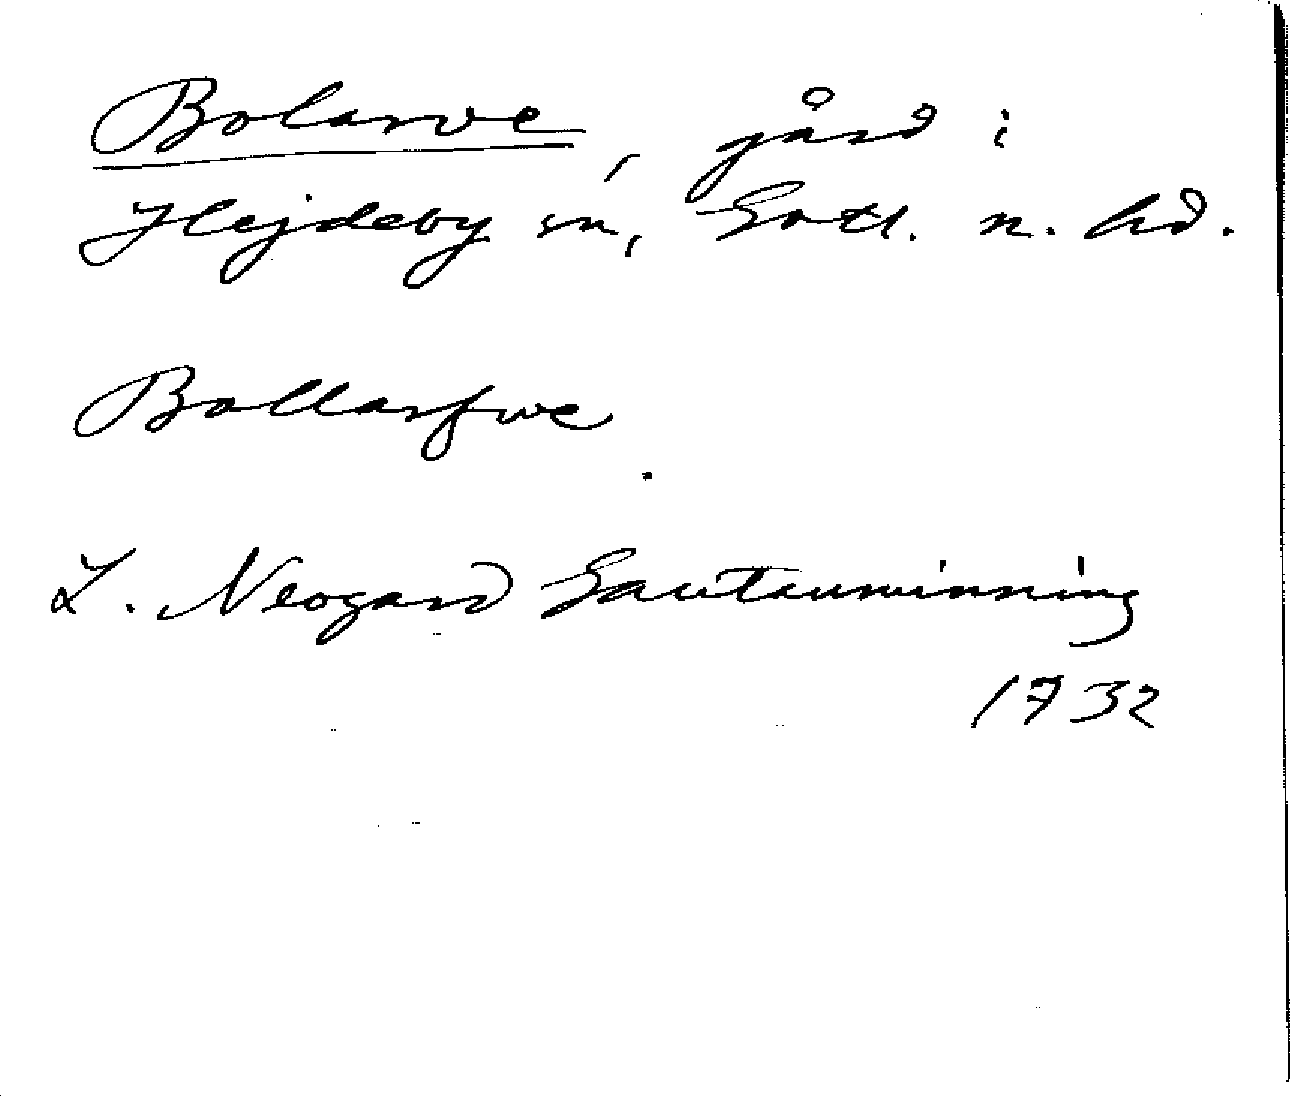 Bolarve, gård i
Hejdeby sn, Gotl. n. hd.
Bollarfwe
L. Neogard Gautauminning
1732